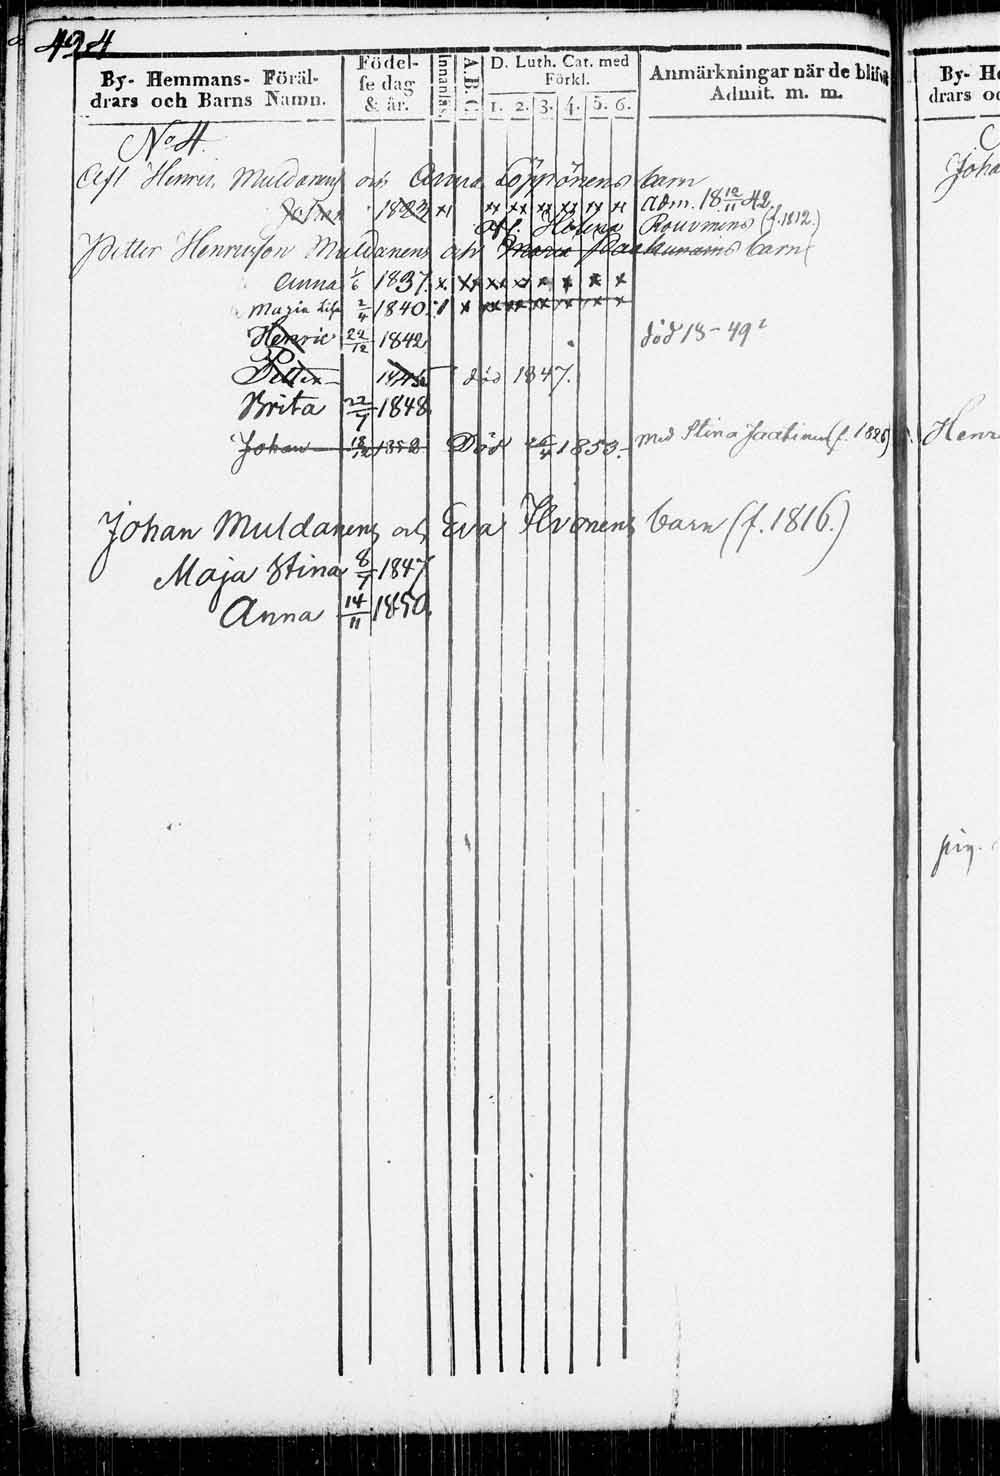 424
By- Hemmans- Föräl-
drars och Barns Namn.
Födel-
se dag
& år.
Innanläs.
A.B.C.
D. Luth. Cat. med
Förkl.
1. 2. 3. 4. 5. 6.
Anmärkningar när de blifvit
Admit. m. m.
No 4.
Afl Henric Muldanens och Anna Löppönens barn
Johan 1823 x xx xx xx xx xx x adm. 18 12/11 42.
afl. Helena Rouvinens (f. 1812.)
Petter Henricsson Muldanens och Maria barn
Anna 1/6 1837 x xx xx x x x x x
Maria Lisa 2/4 1840
Henric 24/12 1842 död 13-49
Petter 1845 död 1847.
Brita 22/7 1848
Johan 18/12 1852 Död 26/4 1853. med Stina (f. 1826)
Johan Muldanens och Eva Ilvonens barn (f. 1816.)
Maja Stina 8/7 1847
Anna 14/11 1850.
By- He
drars oc
Joha
Henr
pig.